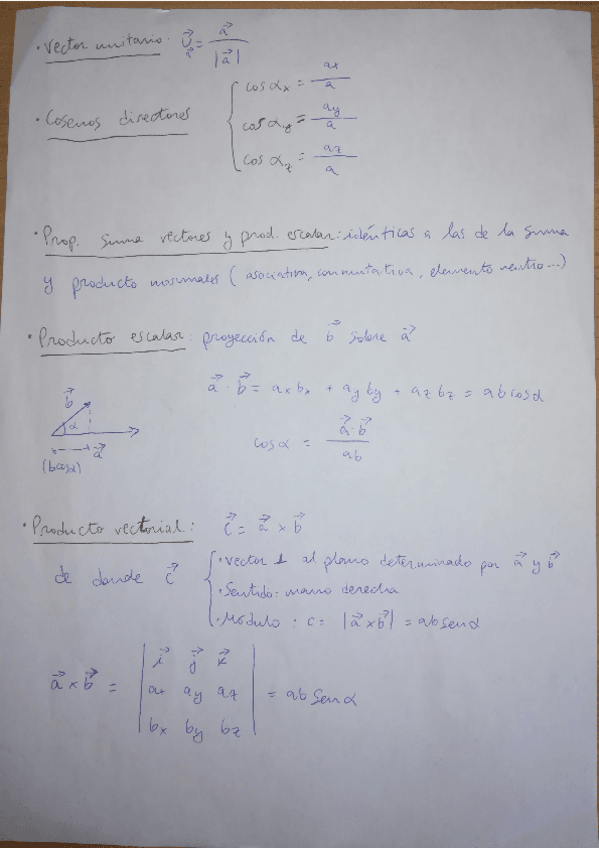 · Vector unitario: U⃗a⃗ = a⃗ / |a⃗|
· Cosenos directores { cos αx = ax / a
cos αy = ay / a
cos αz = az / a
· Prop. Suma vectores y prod. escalar: idénticas a las de la suma
y producto normales (asociativa, conmutativa, elemento neutro...)
· Producto escalar: proyección de b⃗ sobre a⃗
a⃗ · b⃗ = ax bx + ay by + az bz = ab cos α
b⃗
α
a⃗
(b cos α)
cos α = a⃗·b⃗ / ab
· Producto vectorial: c⃗ = a⃗ × b⃗
de donde c⃗ { · Vector ⊥ al plano determinado por a⃗ y b⃗
· Sentido: mano derecha
· Módulo: c = |a⃗ × b⃗| = ab sen α
a⃗ × b⃗ = | i⃗ j⃗ k⃗ |
| ax ay az | = ab sen α
| bx by bz |